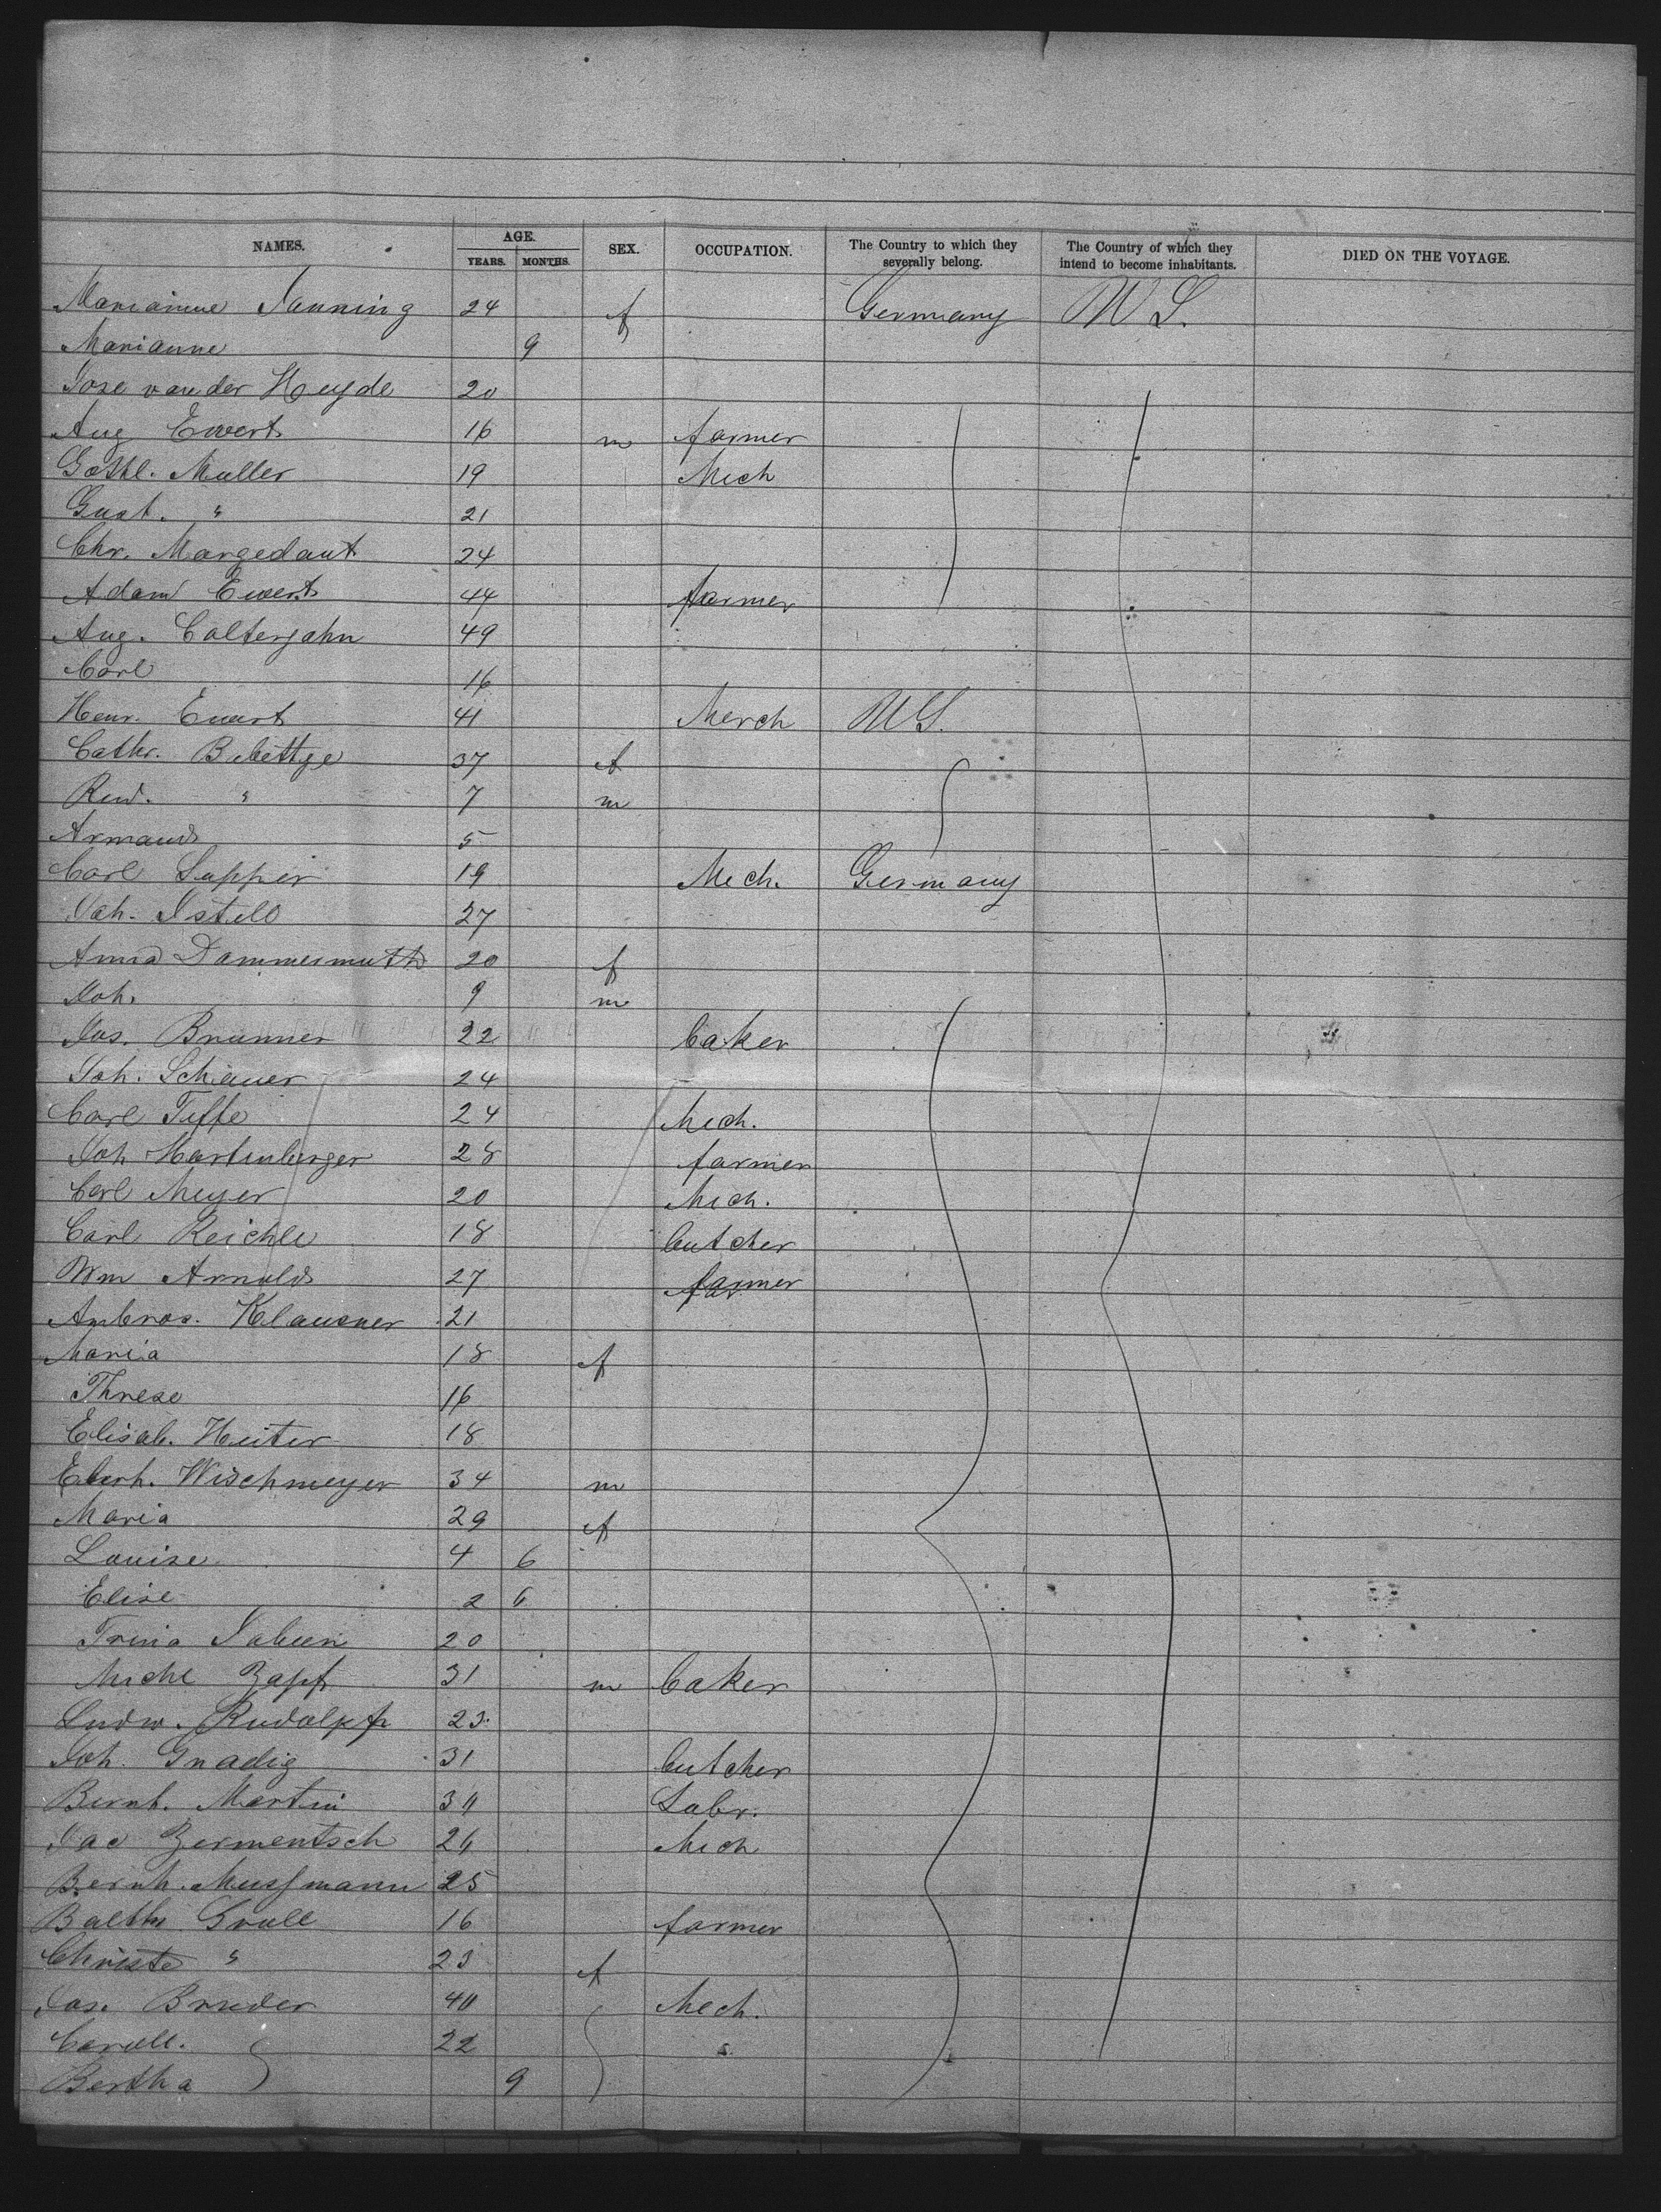 NAMES. AGE. YEARS. MONTHS. SEX. OCCUPATION. The Country to which they severally belong. The Country of which they intend to become inhabitants. DIED ON THE VOYAGE.
Marianne Janning 24 f Germany U S.
Marianne 9
Jose van der Heyde 20
Aug Ewert 16 m farmer
Gothl. Muller 19 Mech
Gust. " 21
Chr. Margedant 24
Adam Ewert 44 farmer
Aug. Colterjahn 49
Carl 16
Henr. Ewert 41 Merch U S.
Cathr. 37 f
Rud. " 7 m
Armand 5
Carl Supper 19 Mech. Germany
Joh. 27
Anna Dammermuth 20 f
Joh. 9 m
Jos. Brunner 22 baker
Joh. Schauer 24
Carl Tiffe 24 Mech.
Joh Hartenberger 28 farmer
Carl Meyer 20 Mech.
Carl Reichle 18 butcher
Wm Arnold 27 farmer
Ambros. Klausner 21
Maria 18 f
Threse 16
Elisab. Heiter 18
Eberh. Wischmeyer 34 m
Maria 29 f
Louise 4 6
Elise 2 6
Trina 20
Michl Zapf 31 m baker
Ludw. Rudolph 23
Joh. Gnadig 31 butcher
Bernh. Martin 34 Labr.
Jac Zermentsch 26 Mech
Bernh. Mussmann 25
Balth Grull 16 farmer
Christe " 23 f
Jos. Bruder 40 Mech.
Caroll. 22 "
Bertha 9